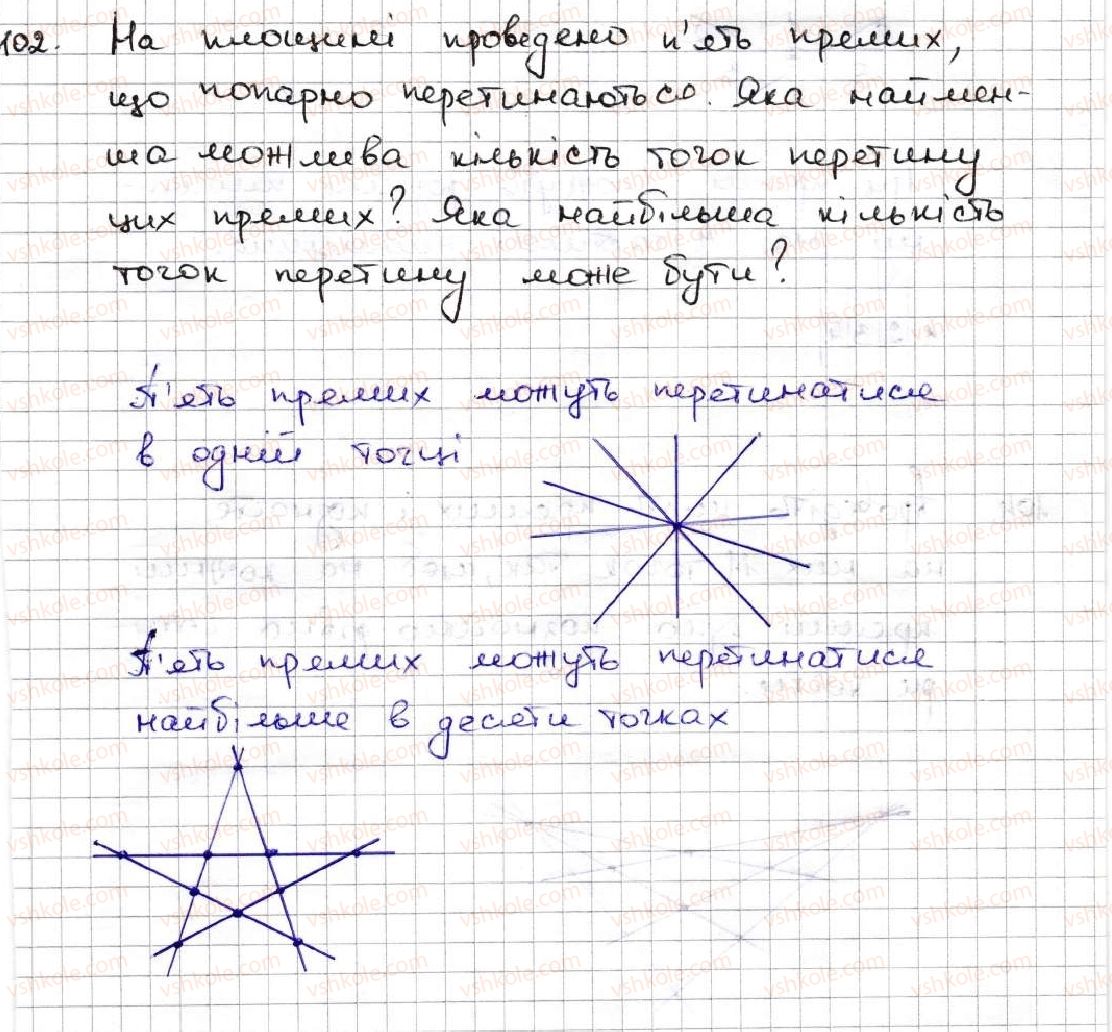 102. На площині проведено п'ять прямих,
що попарно перетинаються. Яка наймен-
ша можлива кількість точок перетину
цих прямих? Яка найбільша кількість
точок перетину може бути?
П'ять прямих можуть перетинатися
в одній точці
П'ять прямих можуть перетинатися
найбільше в десяти точках
vshkole.com